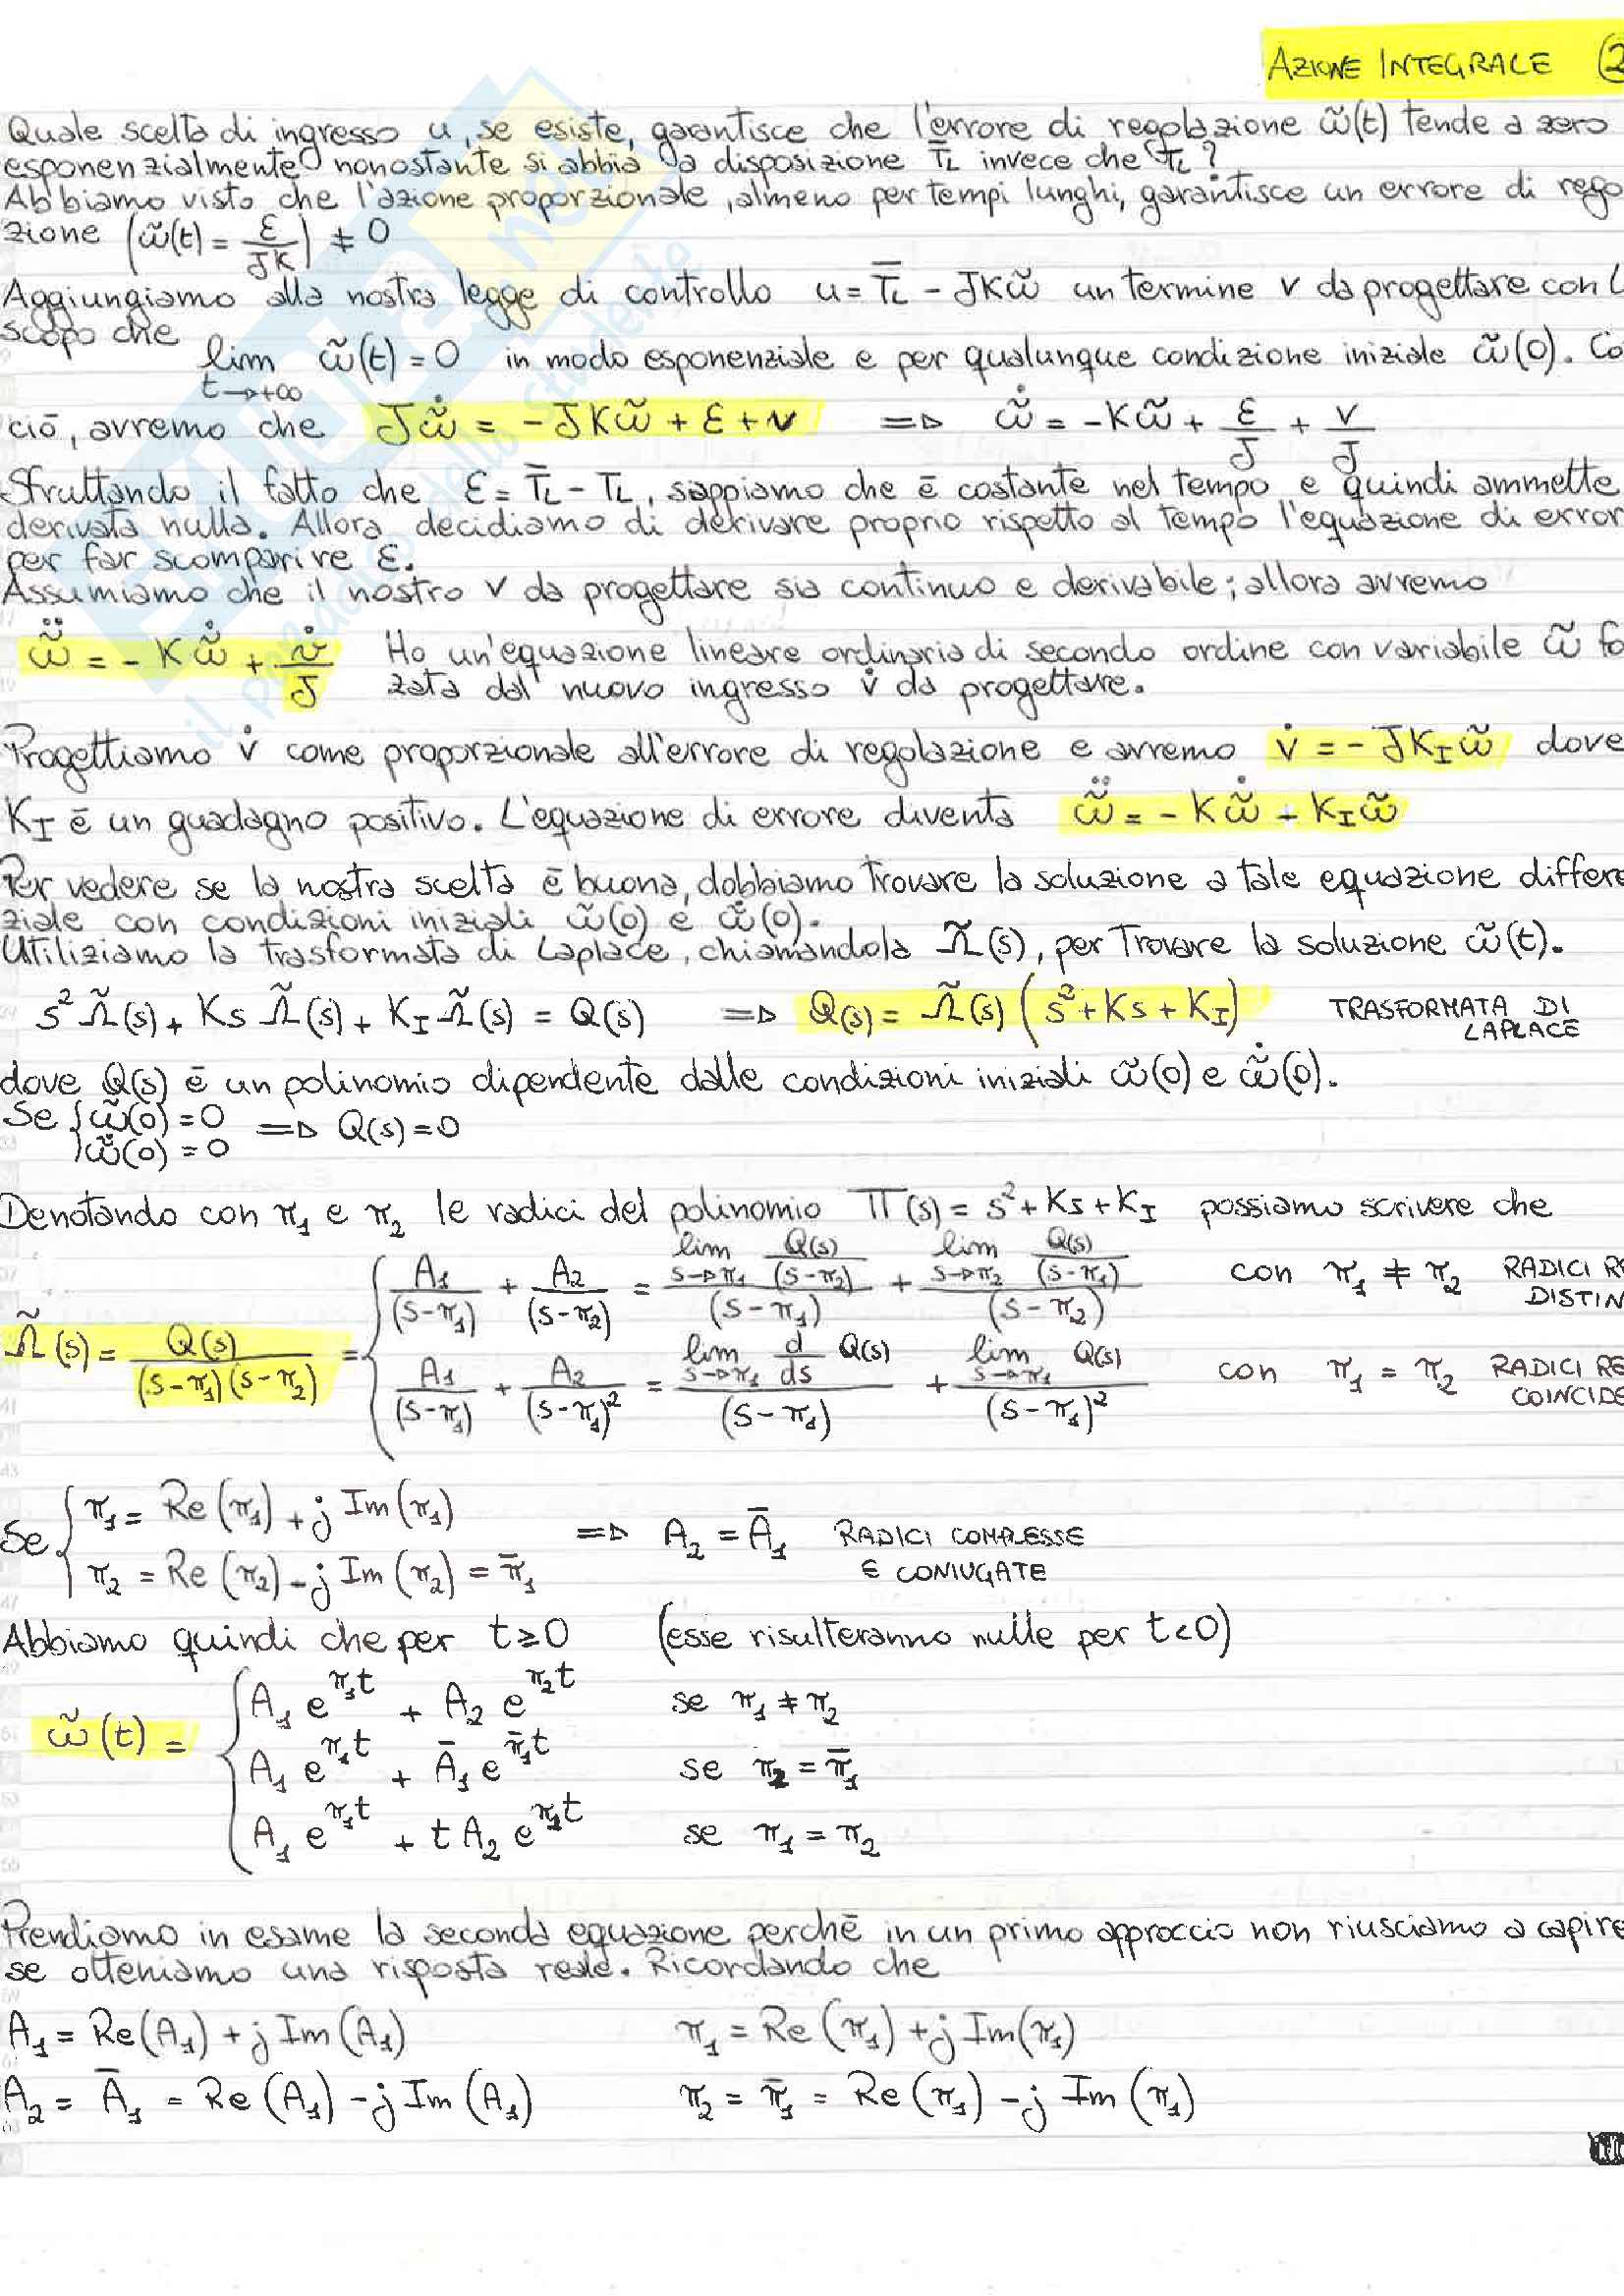 AZIONE INTEGRALE 2
Quale scelta di ingresso u, se esiste, garantisce che l'errore di regolazione ω̃(t) tende a zero
esponenzialmente nonostante si abbia a disposizione T̄L invece che TL?
Abbiamo visto che l'azione proporzionale, almeno per tempi lunghi, garantisce un errore di rego
zione (ω̃(t) = ε/JK) ≠ 0
Aggiungiamo alla nostra legge di controllo u = T̄L - JKω̃ un termine v da progettare con l
scopo che lim t→+∞ ω̃(t) = 0 in modo esponenziale e per qualunque condizione iniziale ω̃(0). Co
ciò, avremo che Jω̃̇ = -JKω̃ + ε + v ⇒ ω̃̇ = -Kω̃ + ε/J + v/J
Sfruttando il fatto che ε = T̄L - TL, sappiamo che è costante nel tempo e quindi ammette
derivata nulla. Allora decidiamo di derivare proprio rispetto al tempo l'equazione di error
per far scomparire ε.
Assumiamo che il nostro v da progettare sia continuo e derivabile; allora avremo
ω̃̈ = -Kω̃̇ + v̇/J Ho un'equazione lineare ordinaria di secondo ordine con variabile ω̃ fo
zata dal nuovo ingresso v̇ da progettare.
Progettiamo v̇ come proporzionale all'errore di regolazione e avremo v̇ = -JK_I ω̃ dove
K_I è un guadagno positivo. L'equazione di errore diventa ω̃̈ = -Kω̃̇ + K_I ω̃
Per vedere se la nostra scelta è buona, dobbiamo trovare la soluzione a tale equazione differe
ziale con condizioni iniziali ω̃(0) e ω̃̇(0).
Utiliziamo la trasformata di Laplace, chiamandola Ω̃(s), per trovare la soluzione ω̃(t).
s²Ω̃(s) + KsΩ̃(s) + K_IΩ̃(s) = Q(s) ⇒ Q(s) = Ω̃(s)(s² + Ks + K_I) TRASFORMATA DI
LAPLACE
dove Q(s) è un polinomio dipendente dalle condizioni iniziali ω̃(0) e ω̃̇(0).
Se { ω̃(0) = 0
ω̃̇(0) = 0 ⇒ Q(s) = 0
Denotando con π₁ e π₂ le radici del polinomio Π(s) = s² + Ks + K_I possiamo scrivere che
Ω̃(s) = Q(s)/((s-π₁)(s-π₂)) = { A₁/(s-π₁) + A₂/(s-π₂) = (lim s→π₁ Q(s)/(s-π₂))/(s-π₁) + (lim s→π₂ Q(s)/(s-π₁))/(s-π₂) con π₁ ≠ π₂ RADICI RE
DISTIN
A₁/(s-π₁) + A₂/(s-π₁)² = (lim s→π₁ d/ds Q(s))/(s-π₁) + (lim s→π₁ Q(s))/(s-π₁)² con π₁ = π₂ RADICI RE
COINCIDE
Se { π₁ = Re(π₁) + j Im(π₁)
π₂ = Re(π₂) - j Im(π₂) = π̄₁ ⇒ A₂ = Ā₁ RADICI COMPLESSE
E CONIUGATE
Abbiamo quindi che per t ≥ 0 (esse risulteranno nulle per t < 0)
ω̃(t) = { A₁ e^{π₁t} + A₂ e^{π₂t} se π₁ ≠ π₂
A₁ e^{π₁t} + Ā₁ e^{π̄₁t} se π₂ = π̄₁
A₁ e^{π₁t} + t A₂ e^{π₁t} se π₁ = π₂
Prendiamo in esame la seconda equazione perchè in un primo approccio non riusciamo a capire
se otteniamo una risposta reale. Ricordando che
A₁ = Re(A₁) + j Im(A₁) π₁ = Re(π₁) + j Im(π₁)
A₂ = Ā₁ = Re(A₁) - j Im(A₁) π₂ = π̄₁ = Re(π₁) - j Im(π₁)